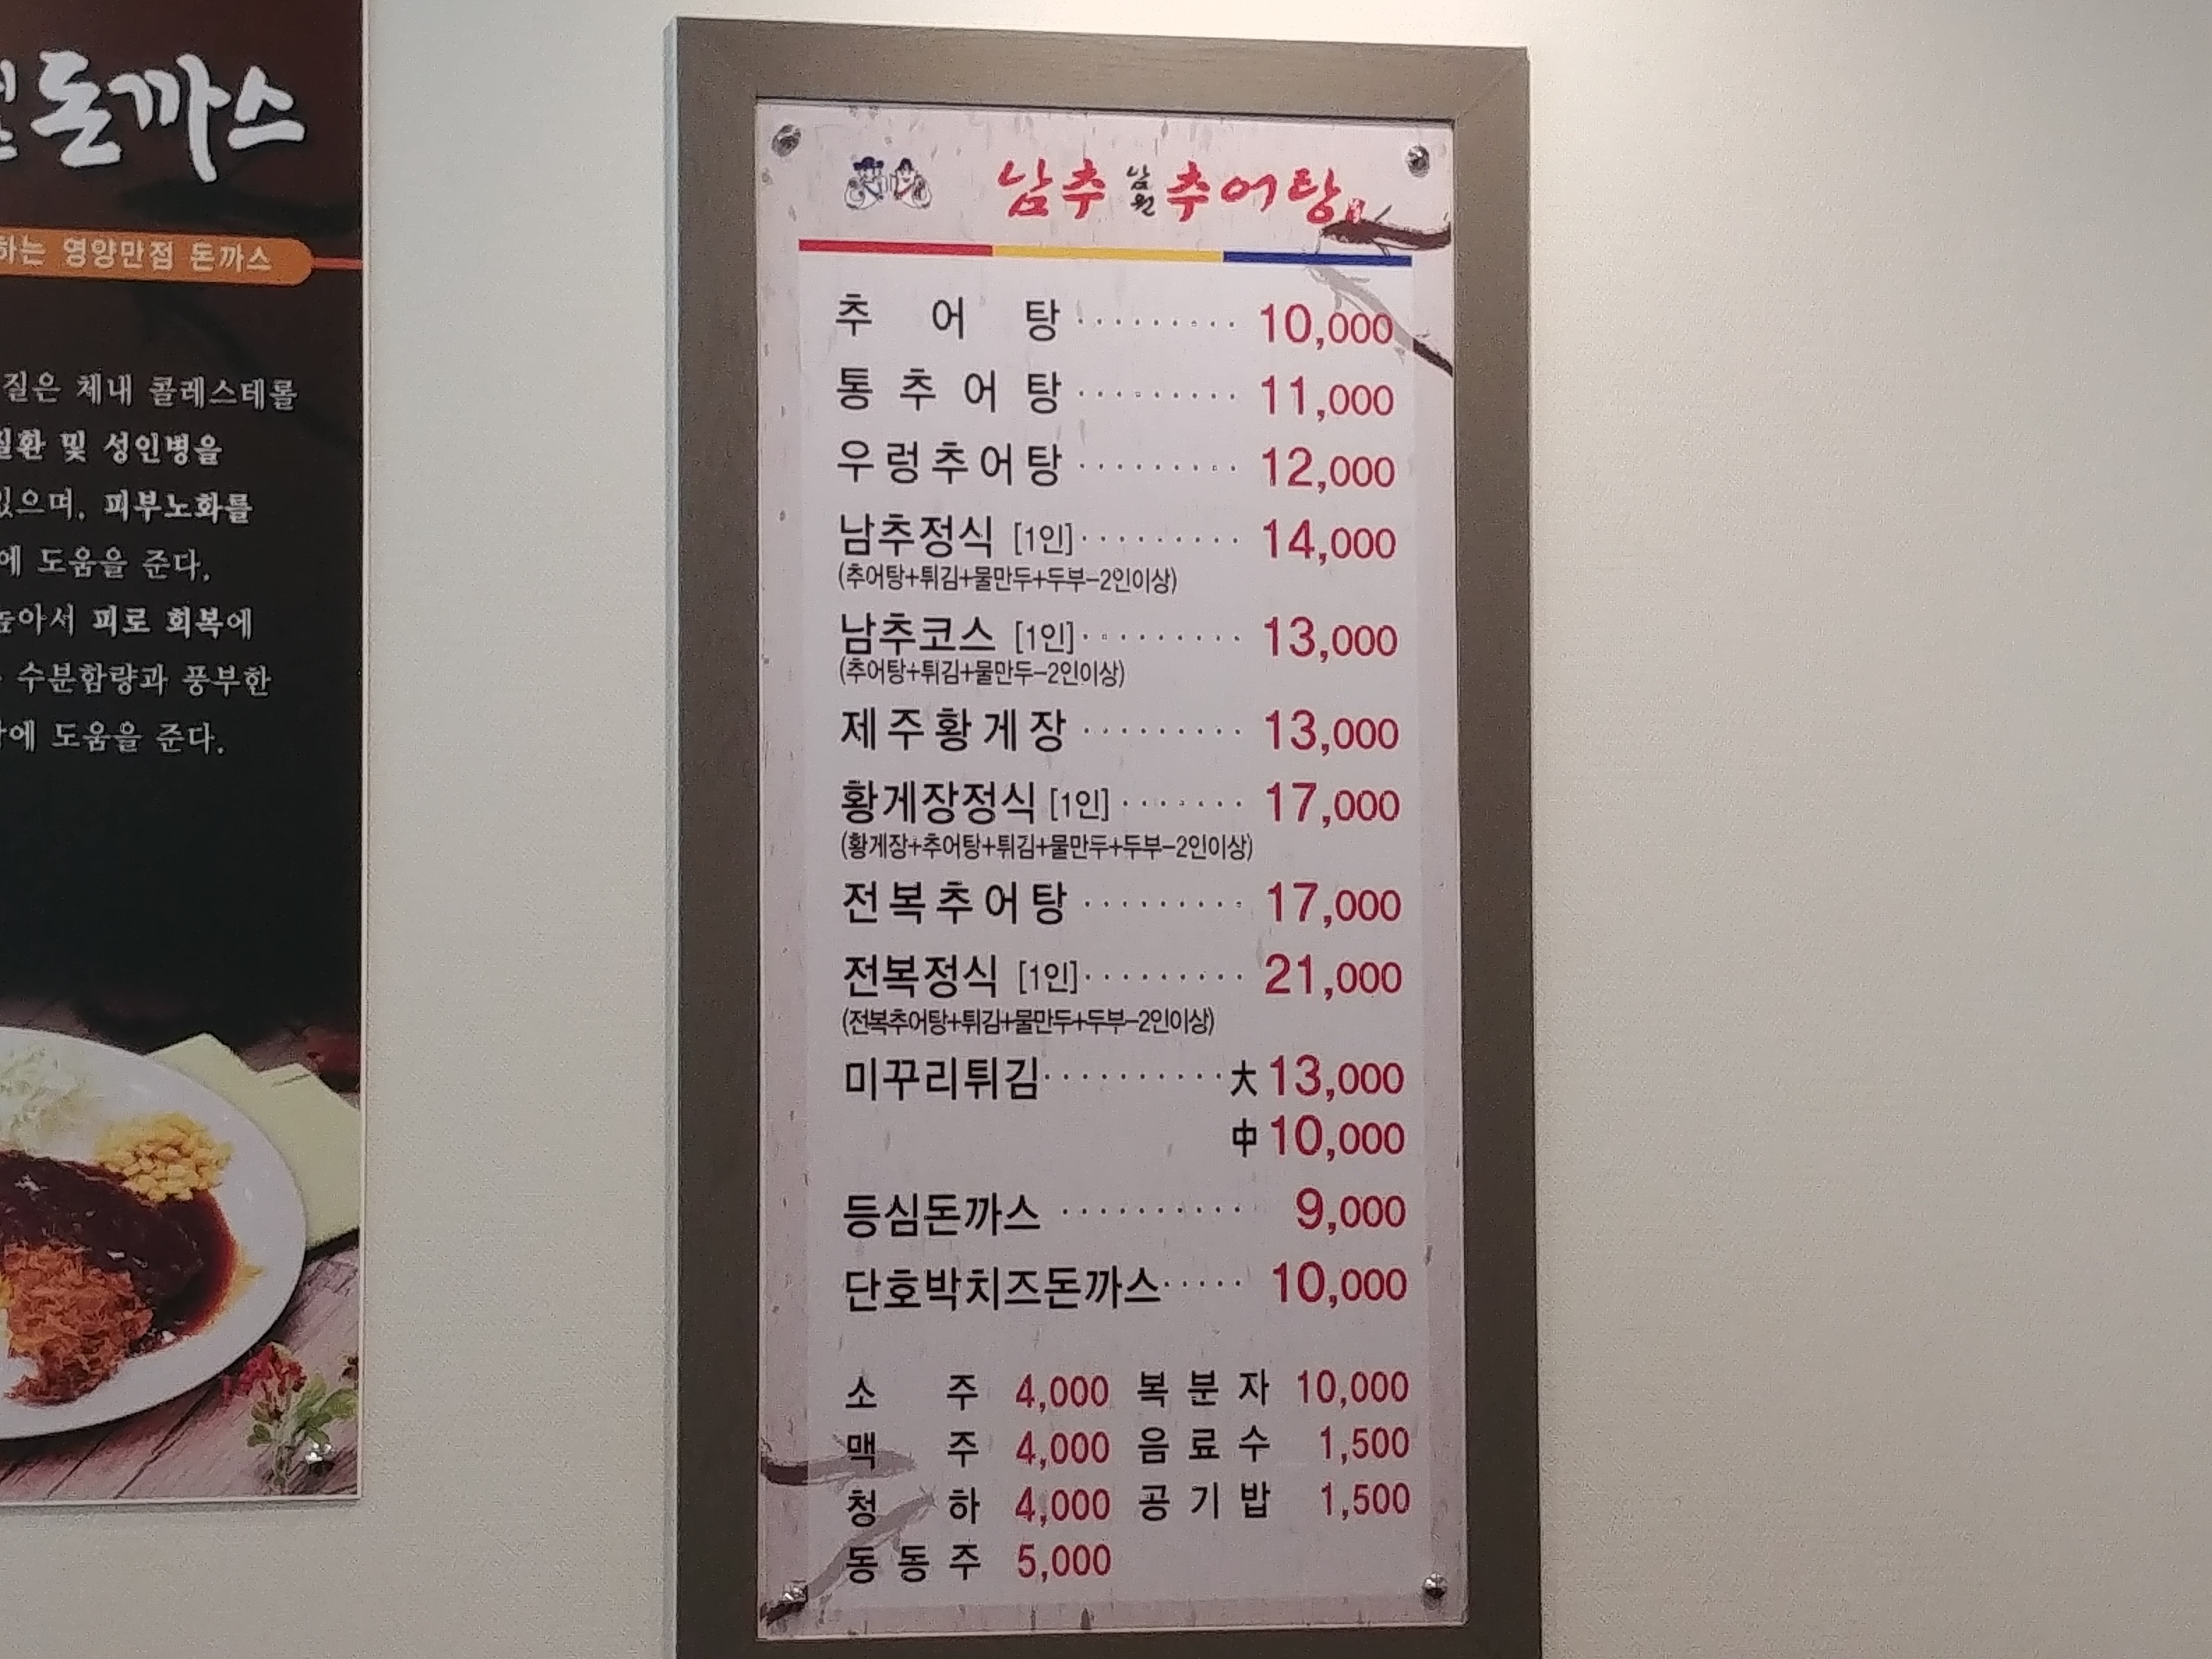 돈까스
하는 영양만점 돈까스
질은 체내 콜레스테롤
질환 및 성인병을
있으며, 피부노화를
에 도움을 준다.
높아서 피로 회복에
수분함량과 풍부한
에 도움을 준다.
남추 남원 추어탕
추 어 탕 ········· 10,000
통 추 어 탕 ········· 11,000
우렁추어탕 ········· 12,000
남추정식 [1인]········· 14,000
(추어탕+튀김+물만두+두부-2인이상)
남추코스 [1인]········· 13,000
(추어탕+튀김+물만두-2인이상)
제주황게장 ········· 13,000
황게장정식 [1인] ······· 17,000
(황게장+추어탕+튀김+물만두+두부-2인이상)
전복추어탕 ········· 17,000
전복정식 [1인]········· 21,000
(전복추어탕+튀김+물만두+두부-2인이상)
미꾸리튀김··········大 13,000
中 10,000
등심돈까스 ·········· 9,000
단호박치즈돈까스····· 10,000
소 주 4,000 복 분 자 10,000
맥 주 4,000 음 료 수 1,500
청 하 4,000 공 기 밥 1,500
동 동 주 5,000